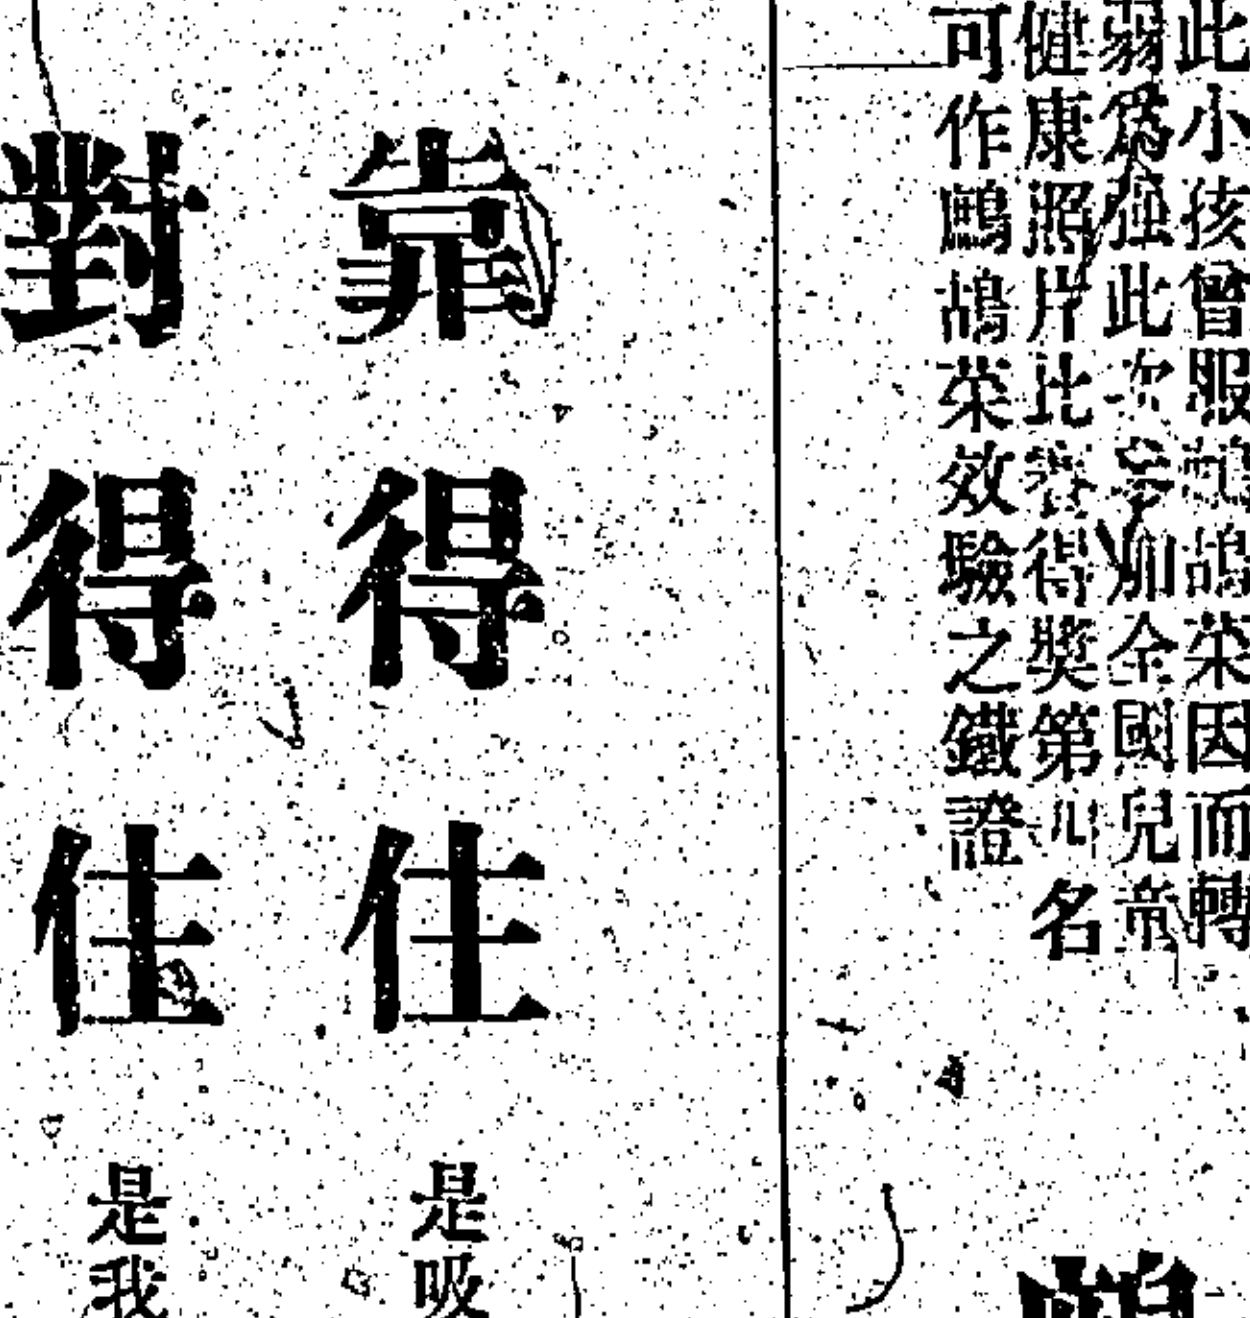 此小孩曾服鷓鴣菜因而轉
弱爲强此次參加全國兒童
健康照片比賽得獎第名
可作鷓鴣菜效驗之鐵證
靠得住是吸
對得住是我